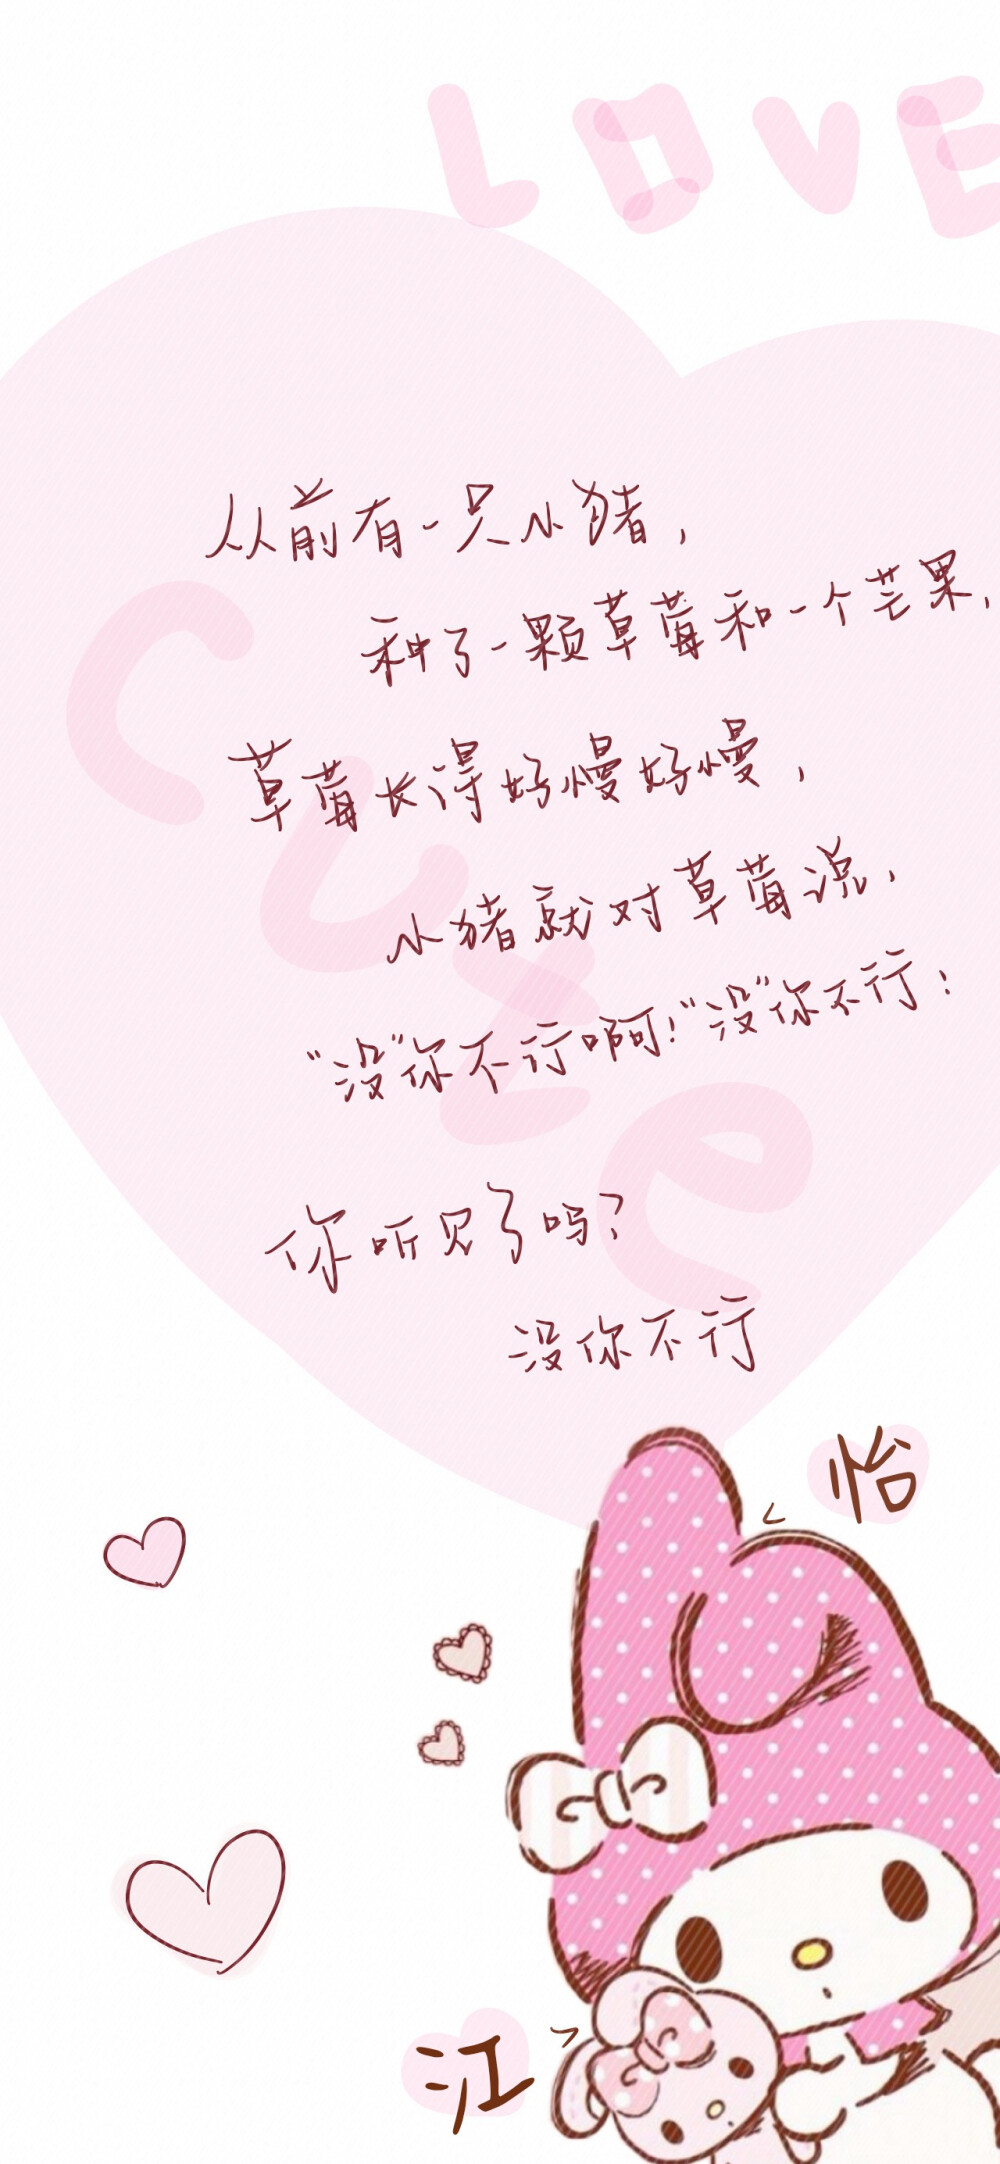 LOVE
从前有一只小猪，
种了一颗草莓和一个芒果，
草莓长得好慢好慢，
小猪就对草莓说，
“没”你不行啊！“没”你不行！
你听见了吗？
没你不行
cute
怡
江